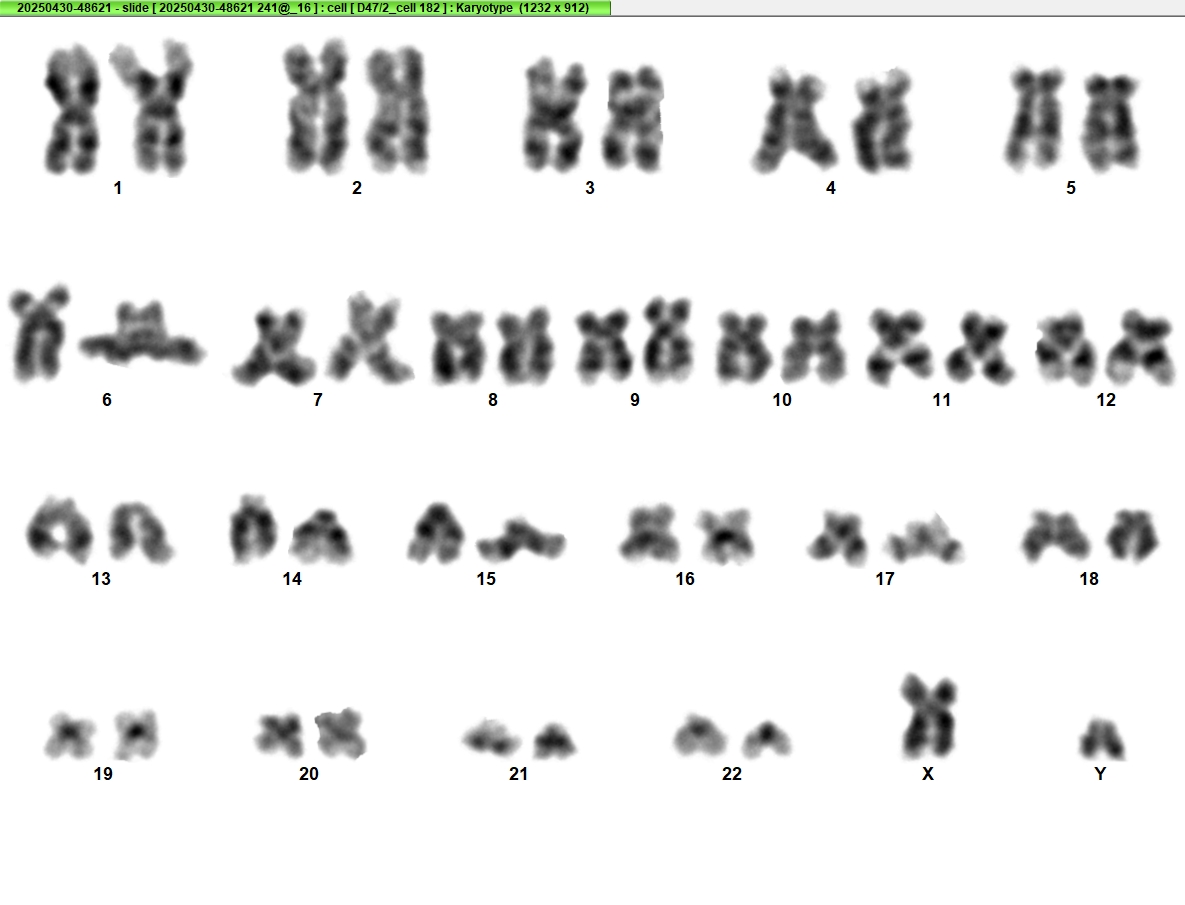 20250430-48621 - slide [ 20250430-48621 241@_16 ] : cell [ D47/2_cell 182 ] : Karyotype (1232 x 912)
1 2 3 4 5
6 7 8 9 10 11 12
13 14 15 16 17 18
19 20 21 22 X Y